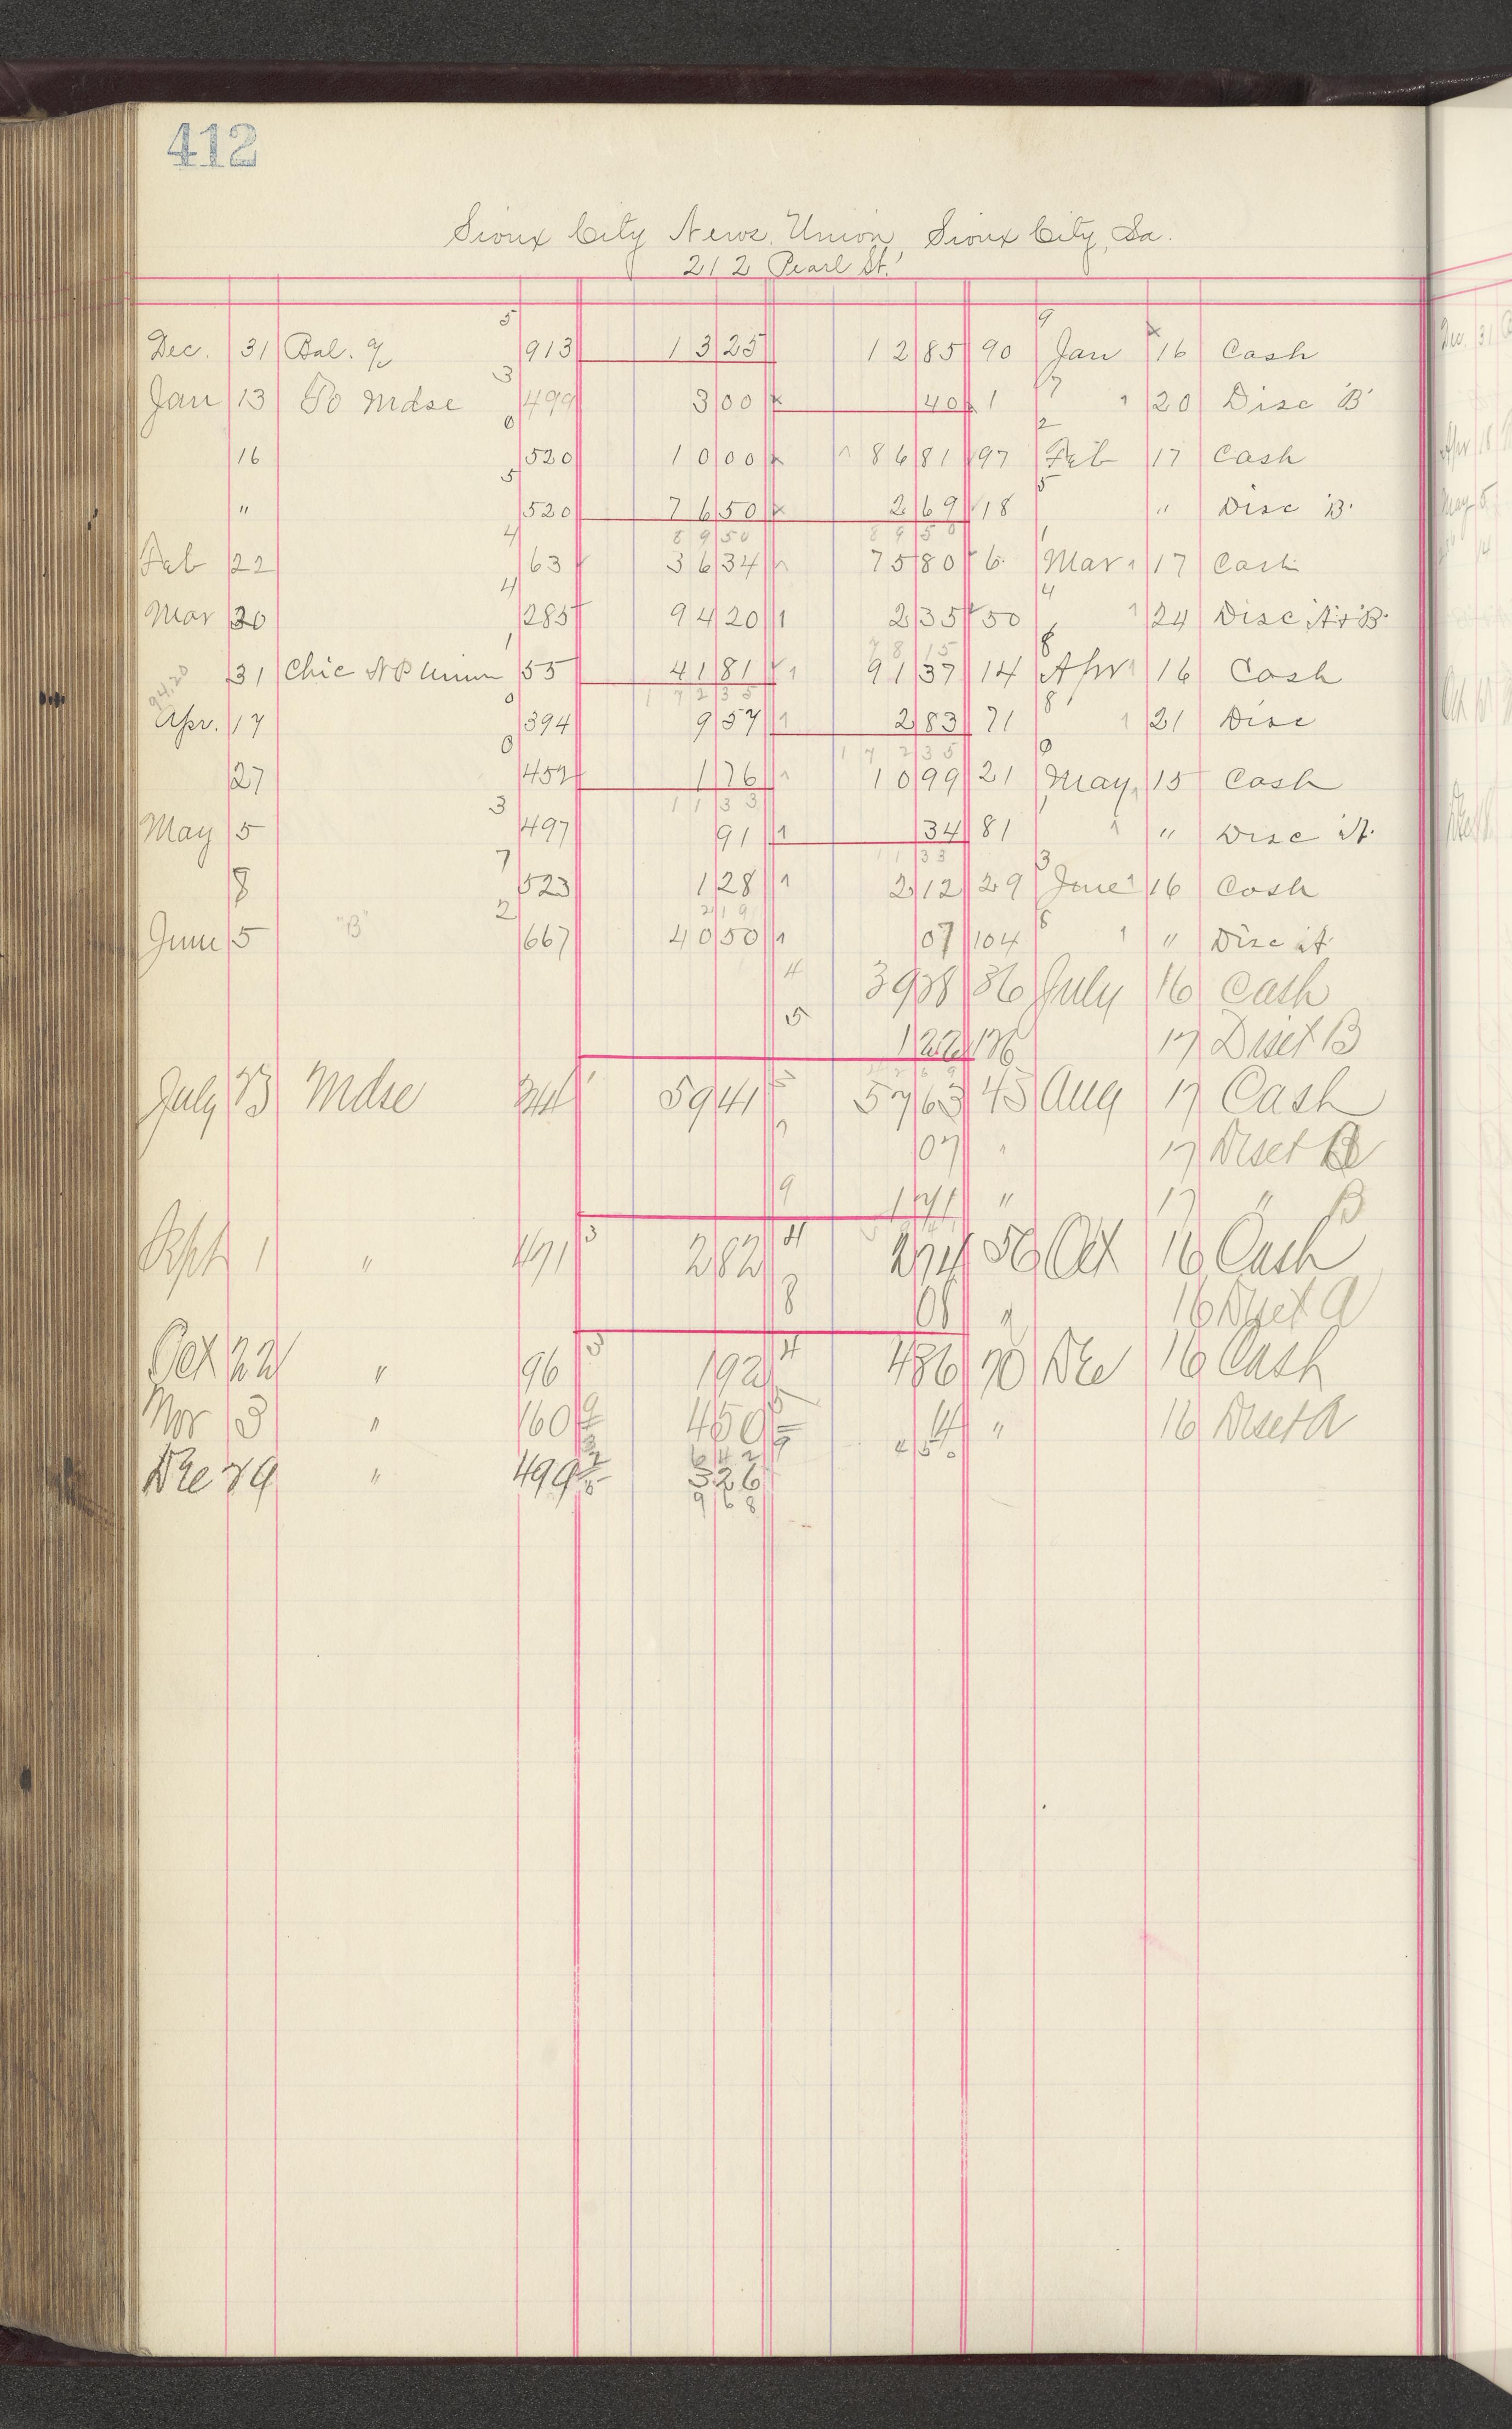 412
Sioux City News Union, Sioux City, Ia.
212 Pearl St.
5 9
Dec. 31 Bal. % 913 13 25 12 85 90 Jan 16 Cash
3 7
Jan 13 To Mdse 499 3 00 40 1 " 20 Disc "B"
0 2
16 520 10 00 86 81 97 Feb 17 Cash
5 5
" 520 76 50 2 69 18 " Disc "B"
4 89 50 89 50 1
Feb 22 63 36 34 75 80 6 Mar 17 Cash
4 4
Mar 30 285 94 20 2 35 50 24 Disc "A" & "B"
1 78 15 8
94.20 31 Chic N P Union 55 41 81 91 37 14 Apr 16 Cash
0 172 35 8
Apr. 17 394 9 57 2 83 71 21 Disc
0 172 35 0
27 452 1 76 10 99 21 May 15 Cash
3 11 33
May 5 497 91 34 81 " Disc "A"
7 11 33 3
8 523 1 28 2 12 29 June 16 Cash
2 2 19 8
June 5 "B" 667 40 50 07 104 " Disc "A"
4 39 28 86 July 16 Cash
5 1 22 136 17 Disct B
July 23 Mdse 344 59 41 57 63 45 Aug 17 Cash
7 07 " 17 Disct
9 1 71 " 17 " B
Sept 1 " 471 3 2 82 4 2 74 56 Oct 16 Cash
8 08 " 16 Disct A
Oct 22 " 96 3 1 92 4 4 86 70 Dec 16 Cash
Nov 3 " 160 4 50 14 " 16 Disct A
6 42
Dec 29 " 499 3 26
9 68